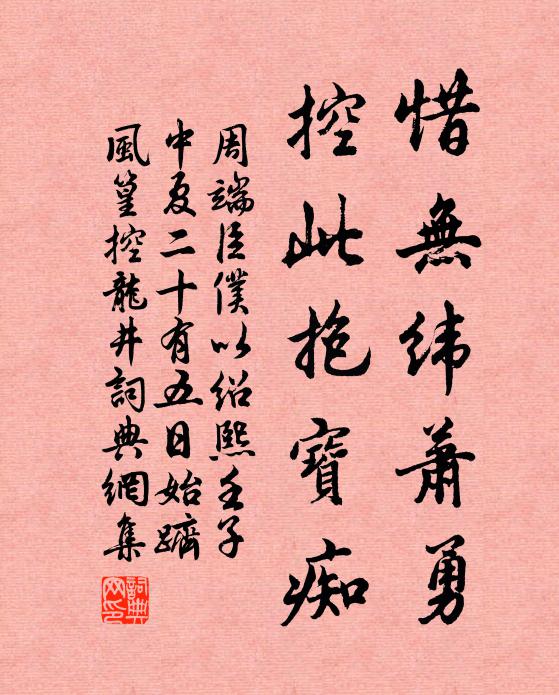 惜無緯蕭勇
控此抱寶痴
周端臣僕以紹熙壬子
中夏二十有五日始躋
風篁控龍井詞典網集
詞典
网印